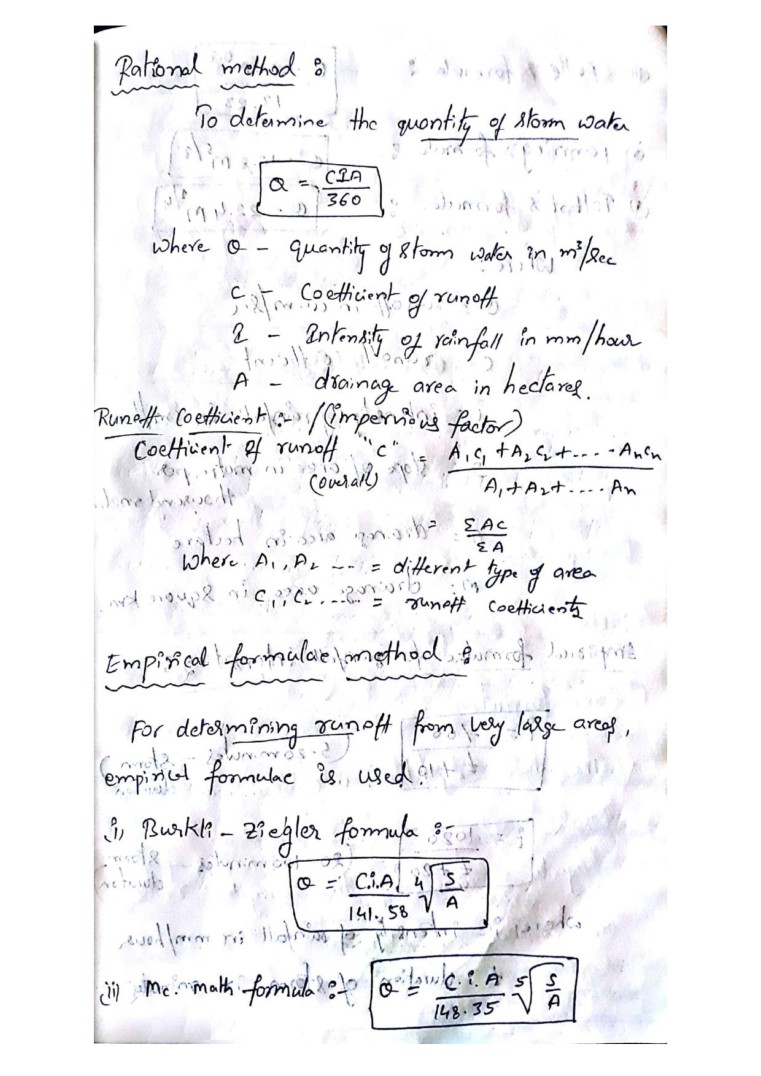 Rational method :
To determine the quantity of storm water
Q = CIA/360
where Q - quantity of storm water in m³/sec
C - Coefficient of runoff
I - Intensity of rainfall in mm/hour
A - drainage area in hectares.
Runoff Coefficient :- / (impervious factor)
Coefficient of runoff "C" (overall) = (A₁C₁ + A₂C₂ + .... AnCn)/(A₁ + A₂ + .... An)
= ΣAC/ΣA
where A₁, A₂ ... = different type of area
C₁, C₂..... = runoff coefficients
Empirical formulae method :
For determining runoff from very large areas,
empirical formulae is used.
i) Burkli - Ziegler formula :-
Q = C.i.A./141.58 ⁴√(S/A)
ii) Mc. math formula :- Q = C.i.A/148.35 ⁵√(S/A)